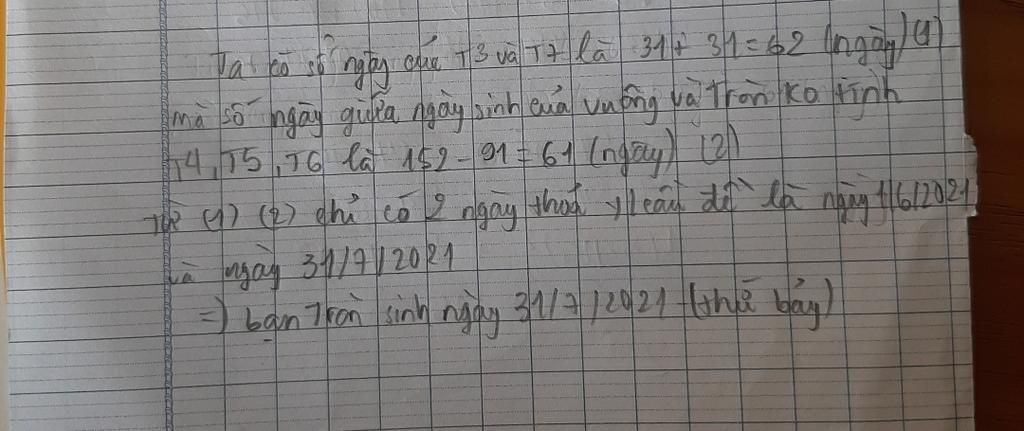 Ta có số ngày của T3 và T7 là 31+ 31 = 62 (ngày) (1)
mà số ngày giữa ngày sinh của vuông và Tròn ko tính
T4, T5, T6 là 152 - 91 = 61 (ngày) (2)
Từ (1) (2) chỉ có 2 ngày thoả y/cầu đề là ngày 1/6/2021
và ngày 31/7/2021
=) bạn Tròn sinh ngày 31/7/2021 (thứ bảy)